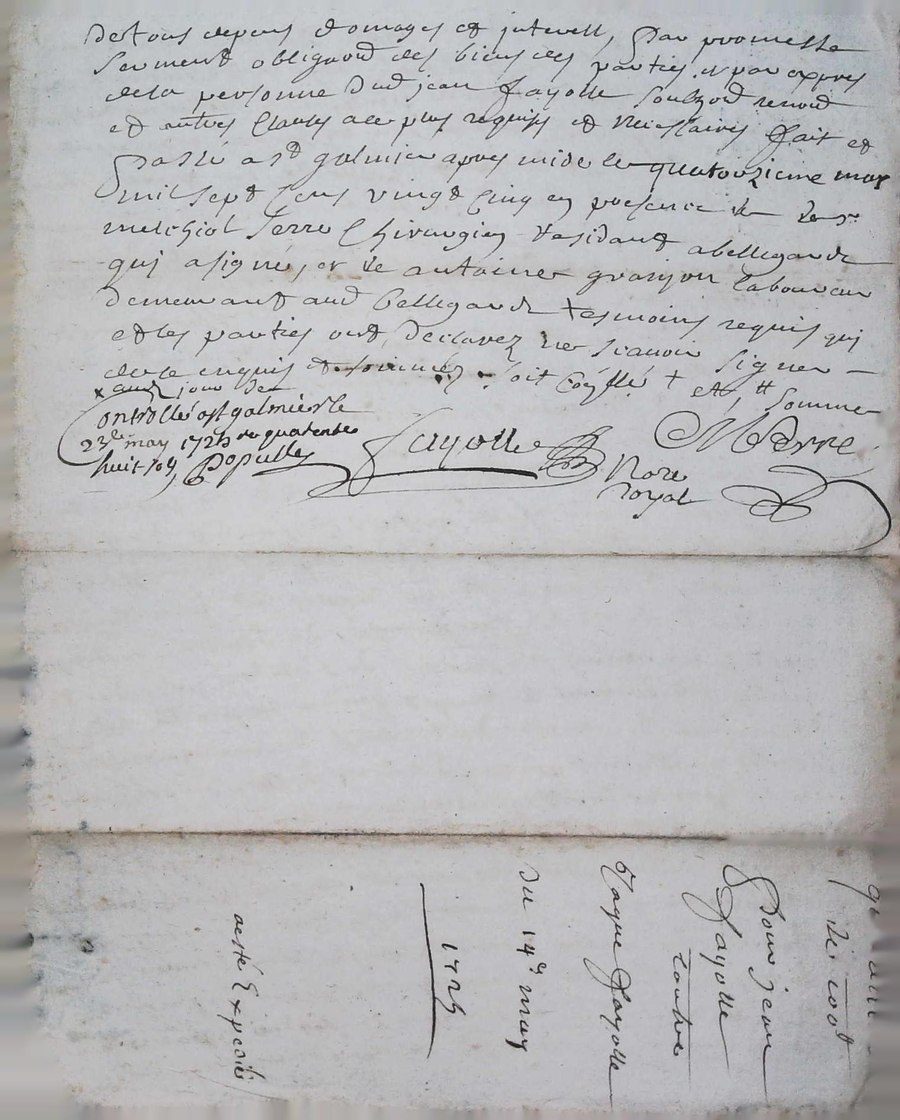 de tous depens domages et interestz, par promesse
serment obligaond des biens des parties, et par expres
de la personne dud jean fayolle soubzond renond
et autres clauses a ce plus requises et necessaires fait et
passé a st galmier apres midi le quatorzieme may
mil sept cens vingt cinq en presence de
melchiol serre chirurgien residant a bellegarde
qui a signé, et de antoine granjon laboureur
demeurant aud bellegarde tesmoins requis qui
et les parties ont declarez ne scavoir signer
de ce enquis et soit +
x aud jour
Controllé a st galmier le
23de may 1725 quarente
huit sos, Populle
fayolle
Nore
royal
MSerre
pour jean
fayolle
contre
Jaque fayolle
du 14e may
1725
aesté Expedié